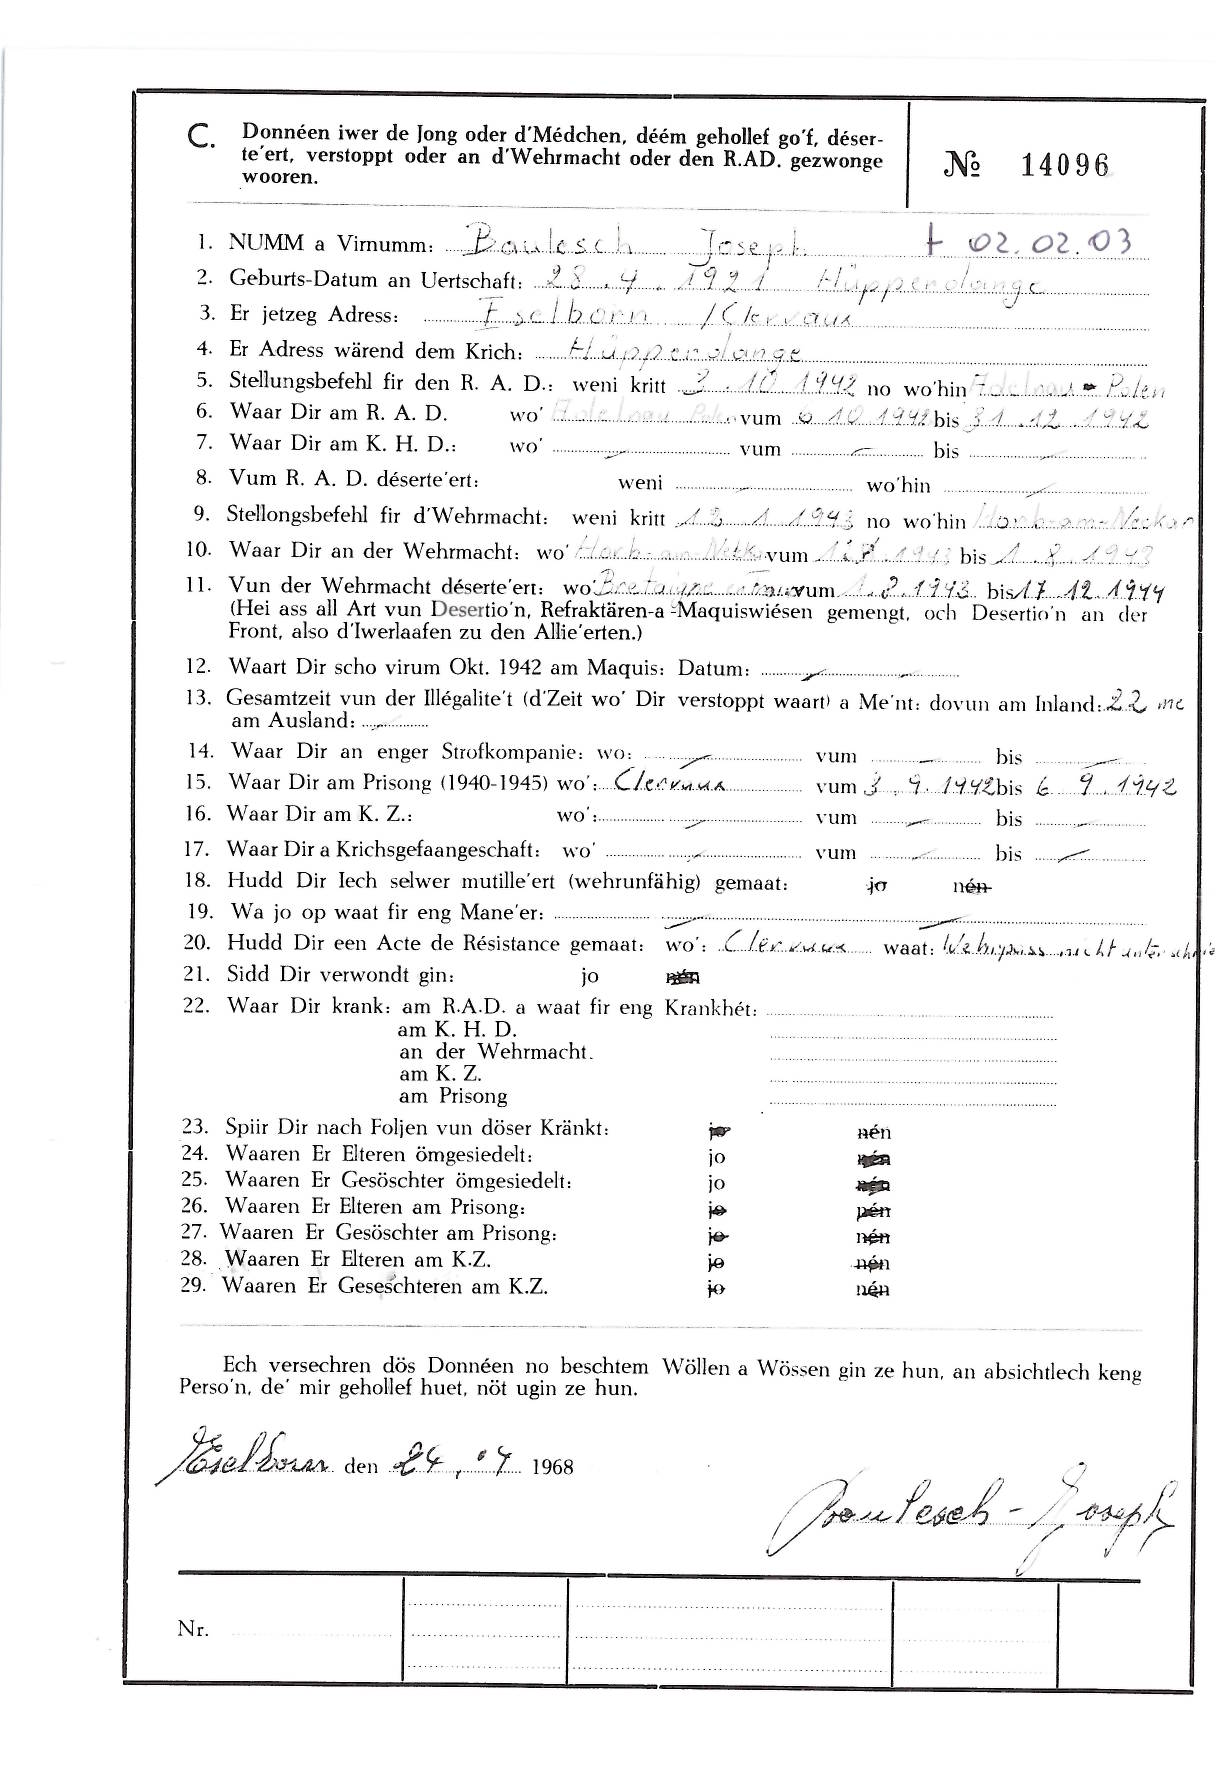 C. Donnéen iwer de Jong oder d'Médchen, déém gehollef go'f, déser-
te'ert, verstoppt oder an d'Wehrmacht oder den R.AD. gezwonge
wooren.
№ 14096
1. NUMM a Virnumm: Baulesch Joseph † 02.02.03
2. Geburts-Datum an Uertschaft: 28.4.1921 Hüppendange
3. Er jetzeg Adress: Eselborn /Clervaux
4. Er Adress wärend dem Krich: Hüppendange
5. Stellungsbefehl fir den R. A. D.: weni kritt 3.10 1942 no wo'hin Adelnau - Polen
6. Waar Dir am R. A. D. wo' Adelnau Polen vum 6 10 1942 bis 31.12.1942
7. Waar Dir am K. H. D.: wo' vum bis
8. Vum R. A. D. déserte'ert: weni wo'hin
9. Stellongsbefehl fir d'Wehrmacht: weni kritt 13 1 1943 no wo'hin Horb-am-Neckar
10. Waar Dir an der Wehrmacht: wo' Horb-am vum 1943 bis 1.8.1943
11. Vun der Wehrmacht déserte'ert: wo' Bretaigne vum 1.8.1943 bis 17.12.1944
(Hei ass all Art vun Desertio'n, Refraktären-a -Maquiswiésen gemengt, och Desertio'n an der
Front, also d'Iwerlaafen zu den Allie'erten.)
12. Waart Dir scho virum Okt. 1942 am Maquis: Datum:
13. Gesamtzeit vun der Illégalite't (d'Zeit wo' Dir verstoppt waart) a Me'nt: dovun am Inland: 22 mo
am Ausland:
14. Waar Dir an enger Strofkompanie: wo: vum bis
15. Waar Dir am Prisong (1940-1945) wo': Clervaux vum 3.9.1942 bis 6 9.1942
16. Waar Dir am K. Z.: wo': vum bis
17. Waar Dir a Krichsgefaangeschaft: wo' vum bis
18. Hudd Dir Iech selwer mutille'ert (wehrunfähig) gemaat: jo nén
19. Wa jo op waat fir eng Mane'er:
20. Hudd Dir een Acte de Résistance gemaat: wo': Clervaux waat: Wehrpass nicht unterschrie
21. Sidd Dir verwondt gin: jo nén
22. Waar Dir krank: am R.A.D. a waat fir eng Krankhét:
am K. H. D.
an der Wehrmacht.
am K. Z.
am Prisong
23. Spiir Dir nach Foljen vun döser Kränkt: jo nén
24. Waaren Er Elteren ömgesiedelt: jo nén
25. Waaren Er Gesöschter ömgesiedelt: jo nén
26. Waaren Er Elteren am Prisong: jo nén
27. Waaren Er Gesöschter am Prisong: jo nén
28. Waaren Er Elteren am K.Z. jo nén
29. Waaren Er Geseschteren am K.Z. jo nén
Ech versechren dös Donnéen no beschtem Wöllen a Wössen gin ze hun, an absichtlech keng
Perso'n, de' mir gehollef huet, nöt ugin ze hun.
Eselborn den 24.4 1968
Baulesch - Joseph
Nr.